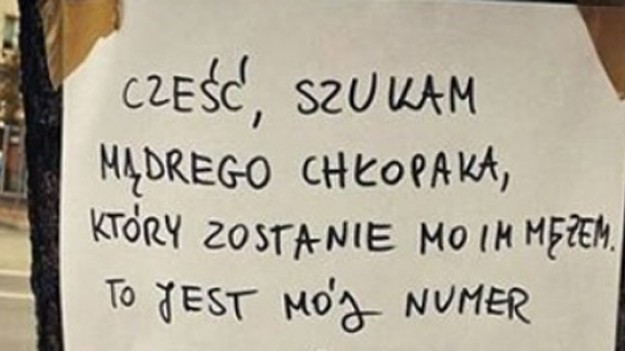 CZEŚĆ, SZUKAM
MĄDREGO CHŁOPAKA,
KTÓRY ZOSTANIE MOIM MĘŻEM.
TO JEST MÓJ NUMER